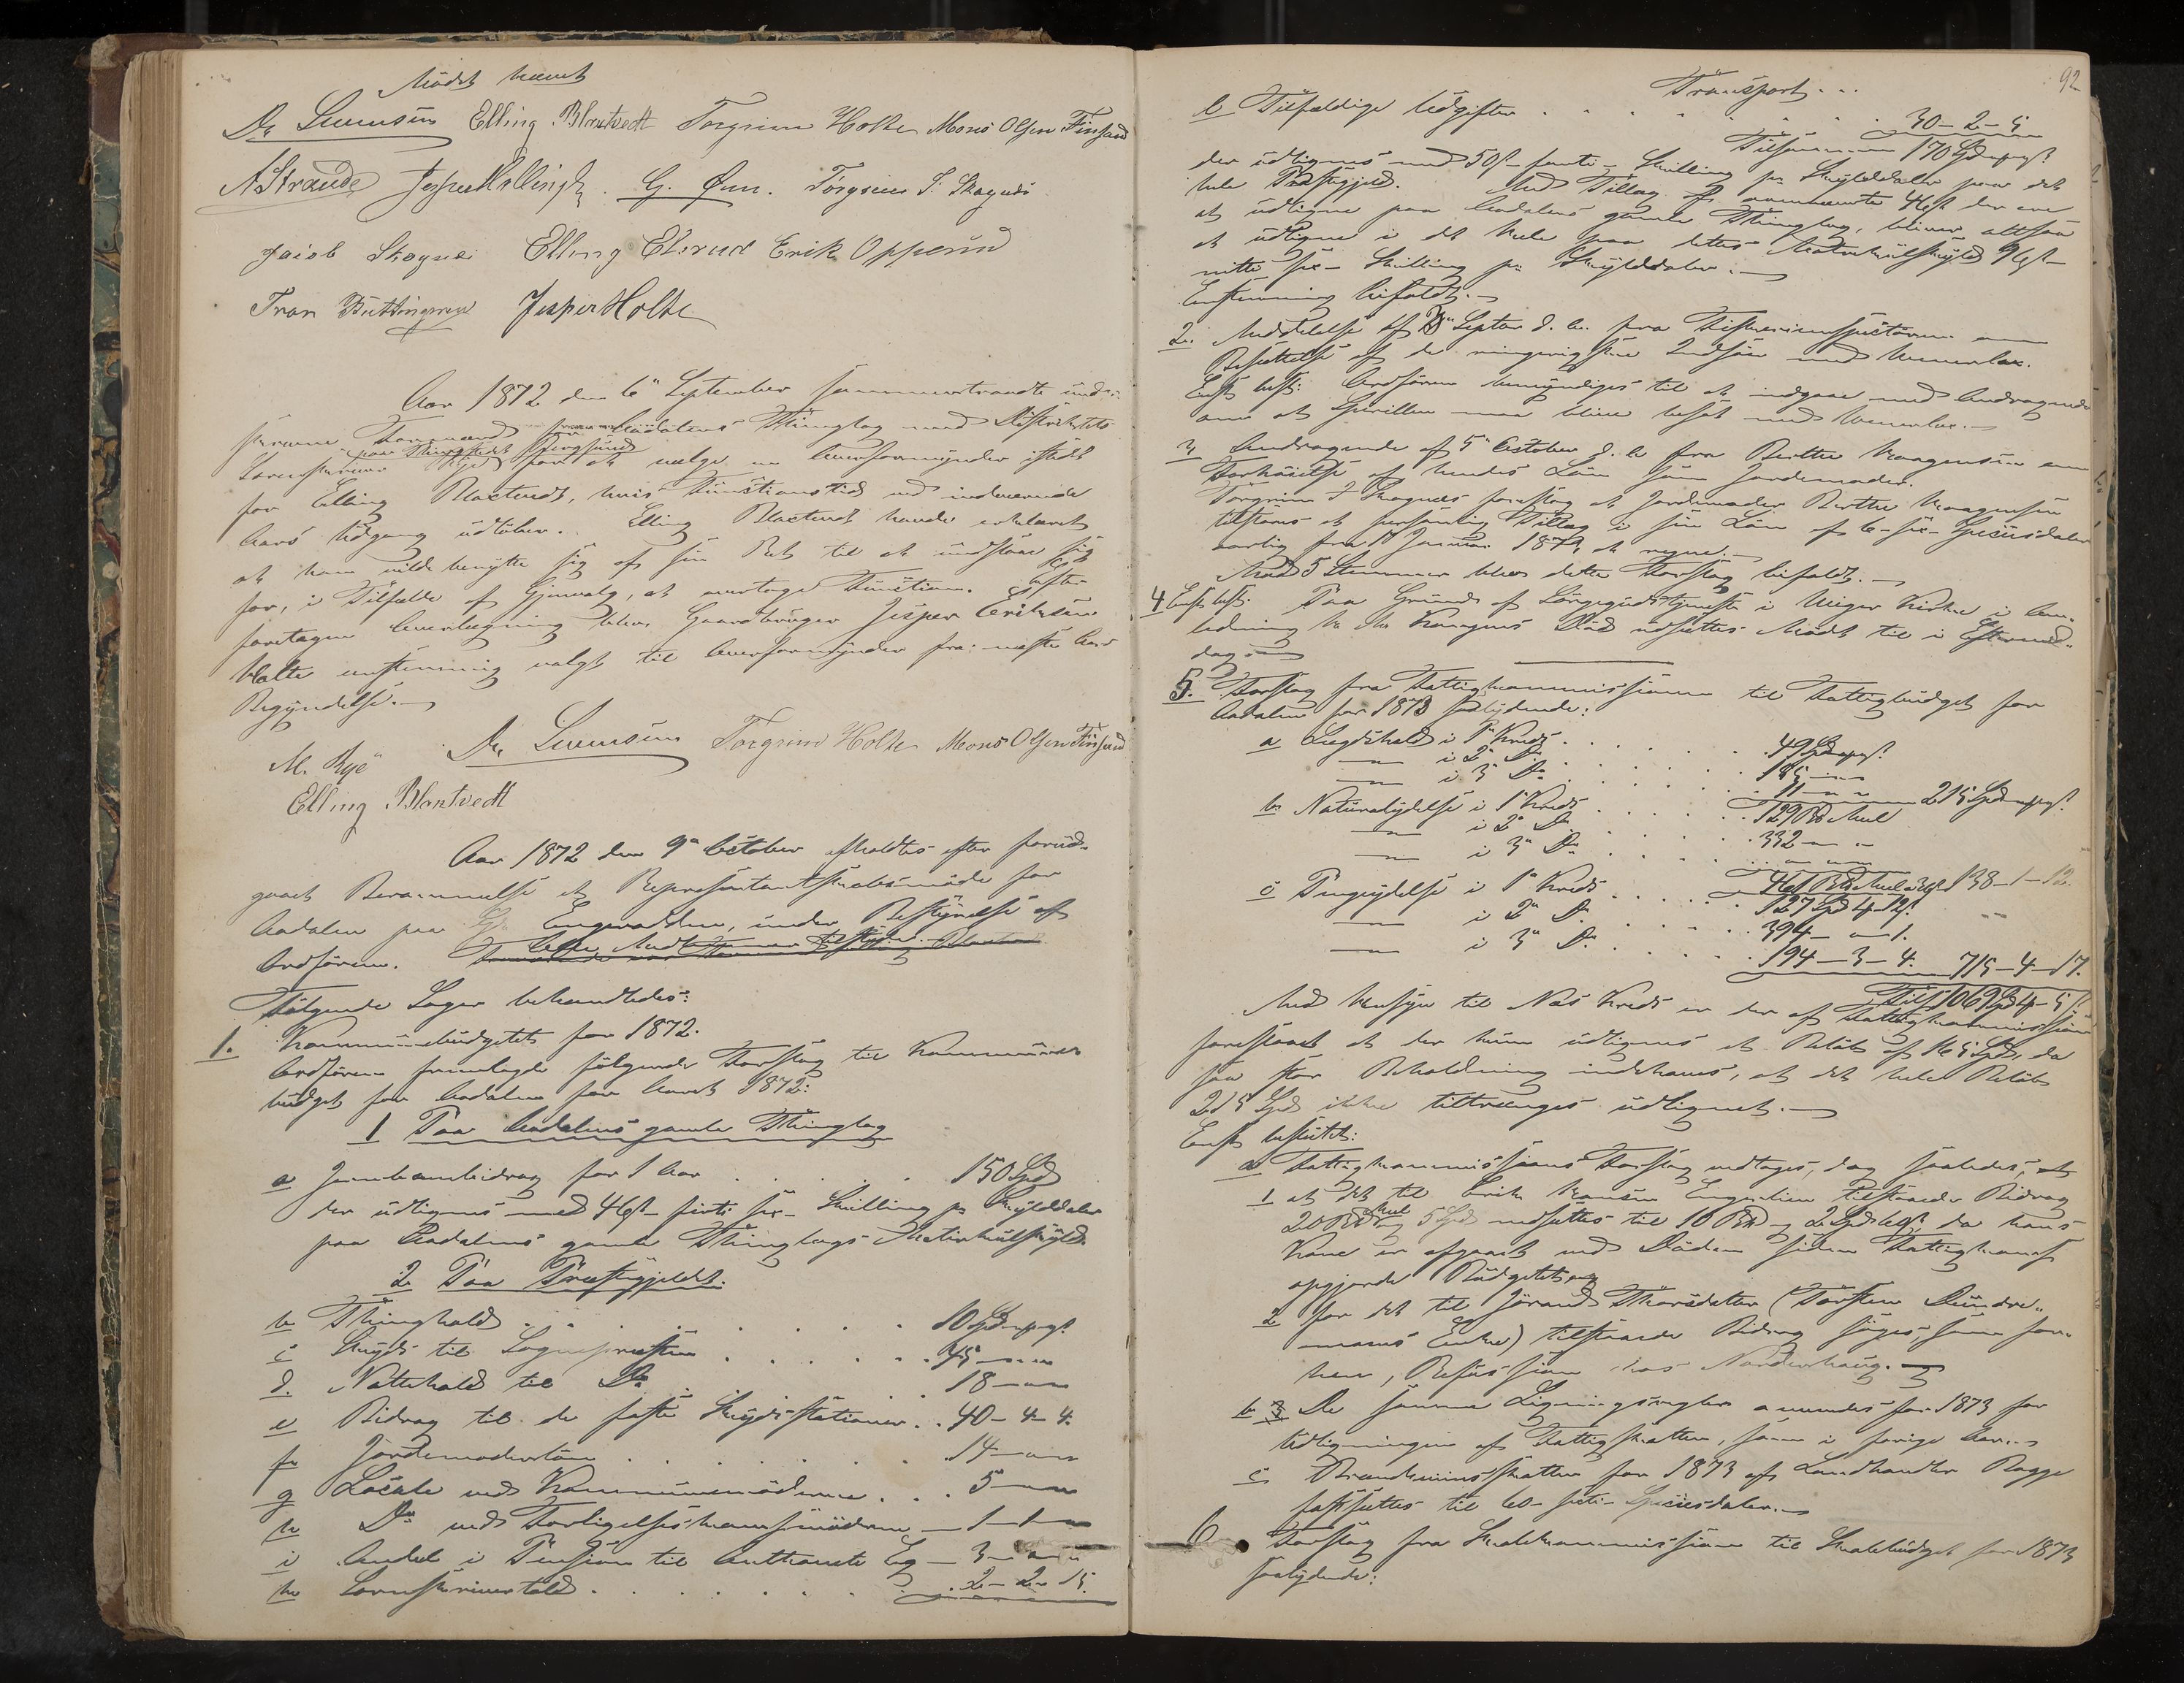 Mødet hævet
Elling Blaktvedt Torgrim Holte Mons Olsen Finsand
AStrande G. Øen. Torgrim T. Skagnæs
Jacob Skagnæs Elling Elsrud Erik Opperud
Iver Buttingsrud Jesper Holte
Aar 1872 den 6te September sammentraadte under-
Formænd for Aadalens Thinglag med Distriktets
Sorenskriver paa Thingstedet for at vælge en Overformynder istedet
for Elling Blaktvedt, hvis Funktionstid ved indeværende
Aars Udgang udløber. Elling Blaktvedt havde erklæret
at han vilde benytte sig af sin Ret til at undslaae sig
for, i Tilfælde af Gjenvalg, at modtage Functionen. Efter
foretagen Overlægning blev Gaardbruger Jesper Eriksen
Holte enstemmig valgt til Overformynder fra næste Aars
Begyndelse.
M. Rye Torgrim Holte Mons Olsen Finsand
Elling Blaktvedt
Aar 1872 den 9de October afholdtes efter forud-
gaaet Berammelse et Repræsentantskabsmøde for
Aadalen paa Engemoen, under Bestyrelse af
Ordføreren.
Følgende Sager behandledes:
1. Kommunebudgettet for 1872.
Ordføreren fremlagde følgende Forslag til Kommune-
budget for Aadalen for Aaret 1872:
1 Paa Aadalens gamle Thinglag
a Jernbanebidrag for 1 Aar . . . . 150 Spd
der udlignes med 46 s - firti sex - Skilling pr Skylddaler
paa Aadalens gamle Thinglags Matrikulskyld.
2 Paa Præstegjeldet.
b Thinghold . . . . . 10 Spd
c Skyds til Sognepræsten . . . . 45 — " — "
d. Nattehold til Do . . . 18 — " — "
e Bidrag til de faste Skydsstationer . . 40 - 4 - 4.
f Jordemoderløn . . . . . 14 — " — "
g Locale ved Kommunemøderne . . . 5 — " — "
h Do ved Forligelseskommismøderne — 1 — 1 — "
i Andel i Pension til — 3 — " — "
k Sorenskrivertold . . . . . 2 - 2 - 15.
92
Transport . . .
l Tilfældige Udgifter . . . . . 30 - 2 - 5
Tilsammen 170 Spd
der udlignes med 50 s - femti - Skilling pr Skylddaler paa det
hele Præstegjeld. Med Tillæg af ovennævnte 46 s der ere
at udligne paa Aadalens gamle Thinglag, bliver altsaa
at udligne i det hele paa dettes Matrikulskyld 96 s -
nitti sex - Skilling pr Skylddaler.
Enstemmig bifaldt.
2. Meddelelse af Septbr d. A. fra Fiskeriinspectøren om
Besættelse af de ringerigske Indsøer med Venerlax.
Enst. besl: Ordføreren bemyndiges til at indgaae med Andragende
om at Sperillen maa blive besat med Venerlax.
3 Andragende af 5te October d. A. fra Berthe Haagensen om
Forhøielse af hendes Løn som Jordemoder.
Torgrim T Skagnæs foreslog at Jordemoder Berthe Haagensen
tilstaaes et personligt Tillæg i sin Løn af 6 - sex - Speciesdaler
aarlig fra 1 Januar 1873 at regne.
Med 5 Stemmer blev dette Forslag bifaldt.
4 Enst. besl. Paa Grund af Sørgegudstjeneste i Viger Kirke i An-
ledning af Kongens Død udsættes Mødet til i Eftermid-
dag.
5. Forslag fra Fattigkommissionen til Fattigbudget for
Aadalen for 1873 saalydende:
a Lægdshold i 1ste Kreds . . . . . 49 Spd
— i 2den Do . . . . . 155 — " — "
— i 3die Do . . . . . 11 — " — " 215 Spd
b Naturalydelse i 1ste Kreds . . . . 129 Bd Meel
— i 2den Do . . . . 332 — " — "
— i 3die Do . . . .
461 Bd Meel 138 - 1 - 12.
c Pengeydelse i 1ste Kreds . . . . 127 Spd 4 - 12 s
— i 2den Do . . . . 394 — " — 1.
— i 3die Do . . . . 194 — 3 — 4. 715 - 4 - 17.
Tils. 1069 Spd 4 - 5 s
Med Hensyn til Næs Kreds er der af Fattigkommissionen
foreslaaet at der kun udlignes et Beløb af 165 Spd, da
saa stor Beholdning indehaves, at det hele Beløb
215 Spd ikke tiltrænges udlignet.
Enst besluttet:
a Fattigkommissionens Forslag vedtages, dog saaledes, at
1 at det til Erik Hansen tilstaaede Bidrag
20 Bd Meel og 5 Spd nedsættes til 10 Bd og 2 Spd 60 s, da hans
Kone er afgaaet ved Døden siden Fattigkommis
opgjorde Budgettet og
2 for det til Jørand Thorsdatter (Torsten
Enke) tilstaaede Bidrag søges, som før-
hen, Refusion hos Norderhaug.
b De samme Ligningsregler anvendes for 1873 for
Udligningen af Fattigskatten, som i forrige Aar.
c Brændeviinsskatten for 1873 af Landhandler Bagge
fastsættes til 60 - sexti - Speciesdaler.
6 Forslag fra Skolekommissionen til Skolebudget for 1873
saalydende: